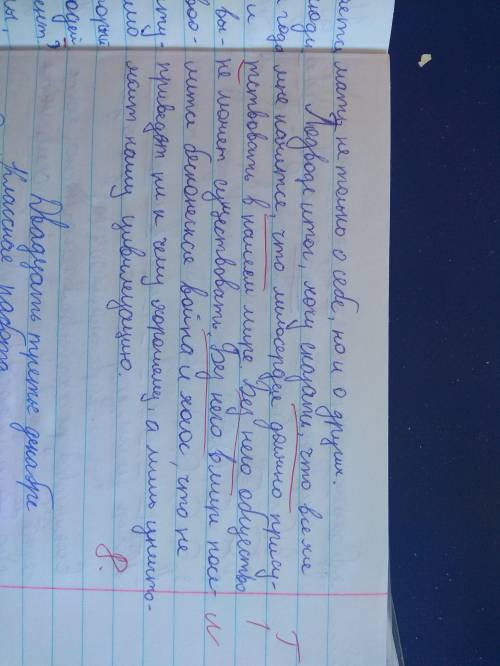 мать не только о себе, но и о других.
Подводя итог, хочу сказать, что все же
мне кажется, что милосердие должно прису-
тствовать в нашем мире. Без него общество
не может существовать. Без него в мире поя-
вится бесконечная война и хаос, что не
приведут ни к чему хорошему, а лишь уничто-
жат нашу цивилизацию.
8.
Двадцать третье декабря
Классная работа